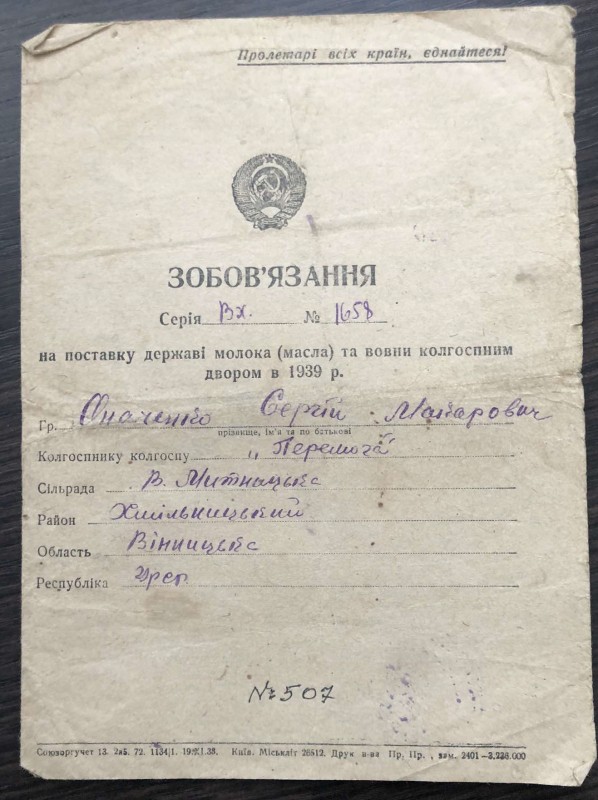 Пролетарі всіх країн, єднайтеся!
ЗОБОВ'ЯЗАННЯ
Серія Вх. № 1658
на поставку державі молока (масла) та вовни колгоспним
двором в 1939 р.
Гр. Сергій Макарович
прізвище, ім'я та по батькові
Колгоспнику колгоспу „Перемога"
Сільрада В. Митницька
Район Хмільницький
Область Вінницька
Республіка Урср.
№ 507
Союзоргучет 13. Київ. Міськліт 26512. Друк Пр, Пр., зам. 2401—3.236.000